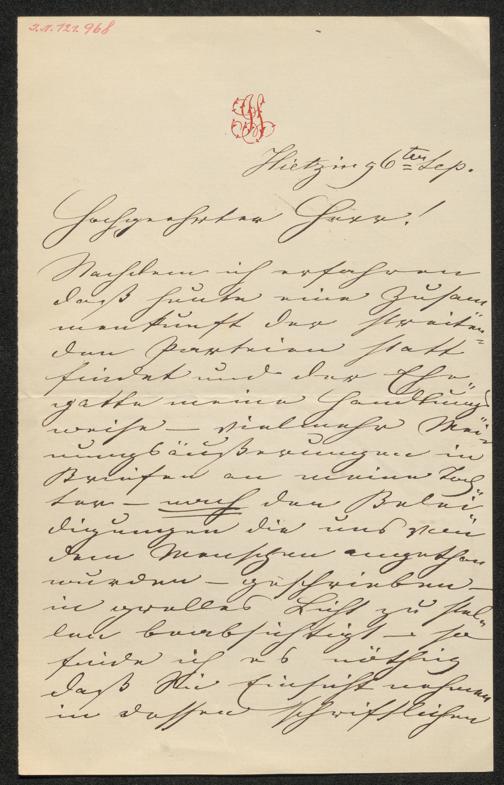 I.N. 121.968
Hietzing 6ten Sep.
Hochgeehrter Herr!
Nachdem ich erfahren
daß heute eine Zusam„
menkunft der streiten„
den Parteien statt
findet und der Ehe„
gatte meine Handlungs
weise – vielmehr Mei„
nungsäußerungen in
Briefen an meine Toch„
ter – nach den Belei„
digungen die uns von
dem Menschen angethan
wurden – geschrieben –
in grelles Licht zu stel„
len beabsichtigt – so
finde ich es nöthig
daß Sie Einsicht nehmen
in dessen schriftlichen